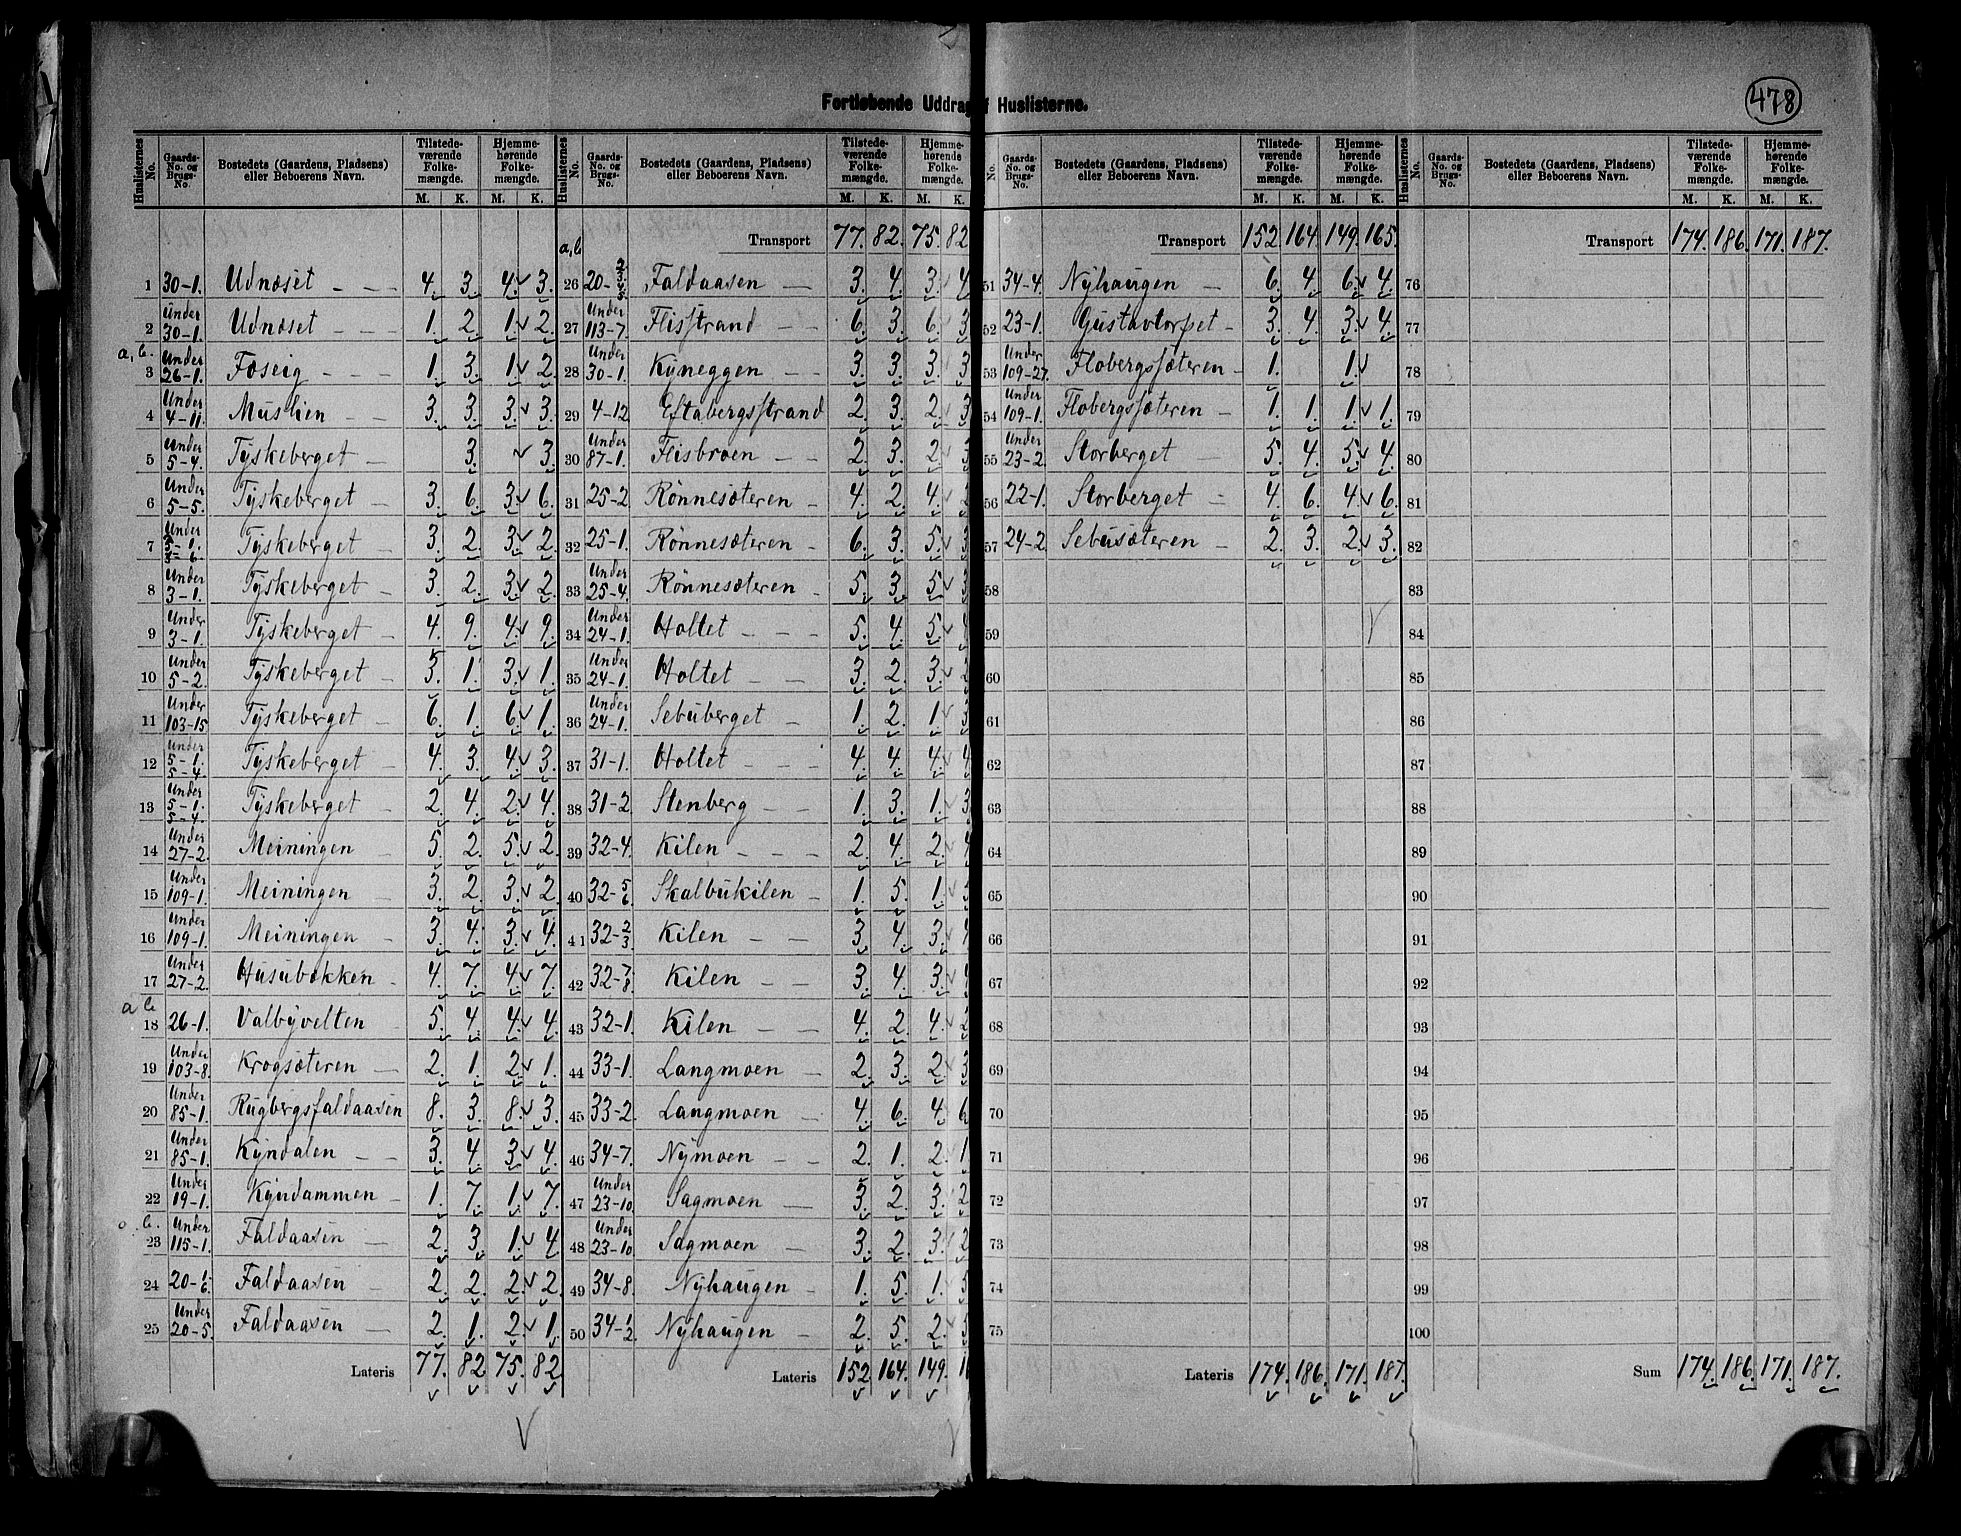 478
Fortløbende Uddrag af Huslisterne.
Huslisternes No. | Gaards-No. og Brugs-No. | Bostedets (Gaardens, Pladsens) eller Beboerens Navn. | Tilstedeværende Folkemængde. M. K. | Hjemmehørende Folkemængde. M. K.
1 30-1. Udnæset — 4. 3. 4. 3.
2 Under 30-1. Udnæset — 1. 2. 1. 2.
a, b. 3 Under 26-1. Foseig — 1. 3. 1. 2.
4 Under 4-11. Muslien — 3. 3. 3. 3.
5 Under 5-4. Tyskeberget — 3. 3.
6 Under 5-5. Tyskeberget 3. 6. 3. 6.
7 Under Tyskeberget — 3. 2. 3. 2.
8 Under 3-1. Tyskeberget — 3. 2. 3. 2.
9 Under 3-1. Tyskeberget — 4. 9. 4. 9.
10 Under 5-2. Tyskeberget — 3. 1. 3. 1.
11 Under 103-15 Tyskeberget — 6. 1. 6. 1.
12 Under 5-1. 5-4 Tyskeberget — 4. 3. 4. 3.
13 Under 5-1. 5-4. Tyskeberget — 2. 4. 2. 4.
14 Under 27-2. Meiningen 5. 2. 5. 2.
15 Under 109-1. Meiningen 3. 2. 3. 2.
16 Under 109-1. Meiningen 3. 4. 3. 4.
17 Under 27-2. Husubækken 4. 7. 4. 7.
a b 18 26-1. Valbyvelten 5. 4. 4. 4.
19 Under 103-8. Krogsæteren — 2. 1. 2. 1.
20 Under 85-1. Rugbergsfaldaasen 8. 3. 8. 3.
21 Under 85-1. Kyndalen — 3. 4. 3. 4.
22 Under 19-1. Kyndammen — 1. 7. 1. 7.
b. 23 Under 115-1. Faldaasen — 2. 3. 1. 4.
24 20-1/6. Faldaasen — 2. 2. 2. 2.
25 Under 20-5. Faldaasen — 2. 1. 2. 1.
Lateris 77. 82 75. 82
Huslisternes No. | Gaards-No. og Brugs-No. | Bostedets (Gaardens, Pladsens) eller Beboerens Navn. | Tilstedeværende Folkemængde. M. K. | Hjemmehørende Folkemængde. M. K.
Transport 77. 82. 75. 82
a, b 26 20- Faldaasen — 3. 4. 3. 4
27 Under 113-7. Flisstrand — 6. 3. 6. 3
28 Under 30-1. Kyneggen — 3. 3. 3. 3
29 4-12 Eftabergsstrand 2. 3. 2. 3
30 Under 87-1. Flisbroen — 2. 3. 2. 3
31 25-2 Rønnesæteren — 4. 2. 4. 2
32 25-1. Rønnesæteren — 6. 3. 5. 3
33 Under 25-4. Rønnesæteren 5. 3. 5. 3
34 Under 24-1. Holtet — 5. 4. 5. 4
35 Under 24-1. Holtet — 3. 2. 3. 2
36 Under 24-1. Sebuberget — 1. 2. 1. 3
37 31-1. Holtet — 4. 4. 4. 4
38 31-2. Stenberg — 1. 3. 1. 3
39 32-4. Kilen — 2. 4. 2. 4
40 32-5/6. Skalbukilen — 1. 5. 1. 5
41 32-2/3 Kilen — 3. 4. 3. 4
42 32-7/8. Kilen — 3. 4. 3. 4
43 32-1. Kilen — 4. 2. 4. 2
44 33-1. Langmoen — 2. 3. 2. 3
45 33-2. Langmoen — 4. 6. 4. 6
46 34-7. Nymoen — 2. 1. 2. 1
47 Under 23-10. Sagmoen — 3. 2. 3. 2
48 Under 23-10 Sagmoen — 3. 2. 3. 2
49 34-8. Nyhaugen — 1. 5. 1. 5
50 34-1/2 Nyhaugen — 2. 5. 2. 5
Lateris 152 164. 149.
No. | Gaards-No. og Brugs-No. | Bostedets (Gaardens, Pladsens) eller Beboerens Navn. | Tilstedeværende Folkemængde. M. K. | Hjemmehørende Folkemængde. M. K.
Transport 152 164. 149. 165.
51 34-4. Nyhaugen — 6. 4. 6. 4.
52 23-1. Gustavtorpet — 3. 4. 3. 4.
53 Under 109-27. Flobergsæteren — 1. 1.
54 Under 109-1. Flobergsæteren — 1. 1. 1. 1.
55 Under 23-2. Storberget 5. 4. 5. 4.
56 22-1. Storberget — 4. 6. 4. 6.
57 24-2 Sebusæteren — 2. 3. 2. 3.
58
59
60
61
62
63
64
65
66
67
68
69
70
71
72
73
74
75
Lateris 174. 186. 171. 187.
Huslisternes No. | Gaards-No. og Brugs-No. | Bostedets (Gaardens, Pladsens) eller Beboerens Navn. | Tilstedeværende Folkemængde. M. K. | Hjemmehørende Folkemængde. M. K.
Transport 174. 186. 171. 187.
76
77
78
79
80
81
82
83
84
85
86
87
88
89
90
91
92
93
94
95
96
97
98
99
100
Sum 174. 186. 171. 187.